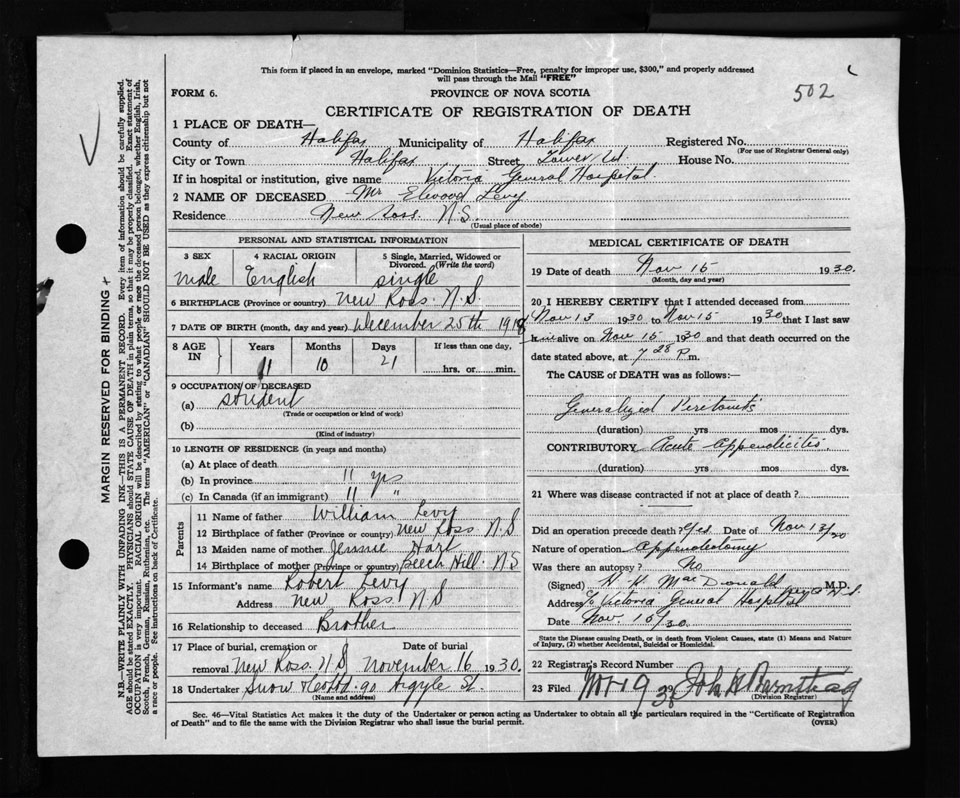 This form if placed in an envelope, marked "Dominion Statistics—Free, penalty for improper use, $300," and properly addressed
will pass through the Mail "FREE"
502
FORM 6.
PROVINCE OF NOVA SCOTIA
CERTIFICATE OF REGISTRATION OF DEATH
1 PLACE OF DEATH—
County of Halifax Municipality of Halifax Registered No.
(For use of Registrar General only)
City or Town Halifax Street Tower Rd House No.
If in hospital or institution, give name Victoria General Hospital
2 NAME OF DECEASED Mr Elwood Levy
Residence New Ross. N.S.
(Usual place of abode)
PERSONAL AND STATISTICAL INFORMATION
3 SEX 4 RACIAL ORIGIN 5 Single, Married, Widowed or Divorced. (Write the word)
Male English single
6 BIRTHPLACE (Province or country) New Ross. N.S.
7 DATE OF BIRTH (month, day and year) December 25th 1918
8 AGE IN Years Months Days If less than one day,
11 10 21 hrs. or min.
9 OCCUPATION OF DECEASED
(a) Student
(Trade or occupation or kind of work)
(b)
(Kind of industry)
10 LENGTH OF RESIDENCE (in years and months)
(a) At place of death
(b) In province 11 yrs
(c) In Canada (if an immigrant) 11 "
Parents
11 Name of father William Levy
12 Birthplace of father (Province or country) New Ross N.S
13 Maiden name of mother Jennie Hart
14 Birthplace of mother (Province or country) Beech Hill. N.S
15 Informant's name Robert Levy
Address New Ross N S
16 Relationship to deceased Brother
17 Place of burial, cremation or Date of burial
removal New Ross. N S November 16 1930.
18 Undertaker Snow & Co Ltd. 90 Argyle St.
(Name and address)
MEDICAL CERTIFICATE OF DEATH
19 Date of death Nov 15 1930.
(Month, day and year)
20 I HEREBY CERTIFY that I attended deceased from
Nov 13 1930 to Nov 15 1930 that I last saw
him alive on Nov 15 1930 and that death occurred on the
date stated above, at 7 28 P.m.
The CAUSE of DEATH was as follows:—
Generalized Peritonitis
(duration) yrs mos dys.
CONTRIBUTORY Acute Appendicitis.
(duration) yrs mos dys.
21 Where was disease contracted if not at place of death?
Did an operation precede death? Yes. Date of Nov 13/30
Nature of operation Appendectomy
Was there an autopsy? No
(Signed) H. K. MacDonald M.D.
Address c/o Victoria General Hospital
Date Nov. 15/30.
State the Disease causing Death, or in death from Violent Causes, state (1) Means and Nature
of Injury, (2) whether Accidental, Suicidal or Homicidal.
22 Registrar's Record Number
23 Filed Nov 19 30 John H Barnstead
(Division Registrar)
Sec. 46—Vital Statistics Act makes it the duty of the Undertaker or person acting as Undertaker to obtain all the particulars required in the "Certificate of Registration
of Death" and to file the same with the Division Registrar who shall issue the burial permit.
(OVER)
MARGIN RESERVED FOR BINDING
N.B.—WRITE PLAINLY WITH UNFADING INK—THIS IS A PERMANENT RECORD. Every item of information should be carefully supplied.
AGE should be stated EXACTLY. PHYSICIANS should STATE CAUSE OF DEATH in plain terms, so that it may be properly classified. Exact statement of
OCCUPATION is very important. RACIAL ORIGIN will be described by stating to what people or race the deceased person belonged, whether English, Irish,
Scotch, French, German, Russian, Ruthenian, etc. The terms "AMERICAN" or "CANADIAN" SHOULD NOT BE USED as they express citizenship but not
a race or people. See instructions on back of Certificate.